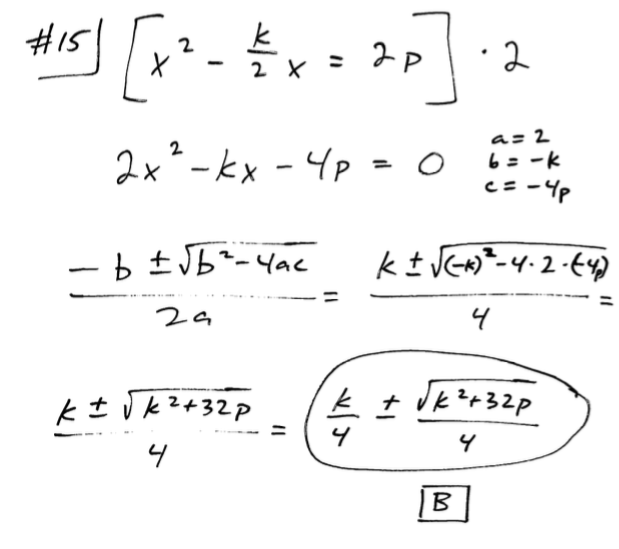 #15 [x² - k/2 x = 2p] · 2
2x² - kx - 4p = 0
a = 2
b = -k
c = -4p
(-b ± √(b² - 4ac))/(2a) = (k ± √((-k)² - 4·2·(-4p)))/4 =
(k ± √(k² + 32p))/4 = k/4 ± √(k² + 32p)/4
B